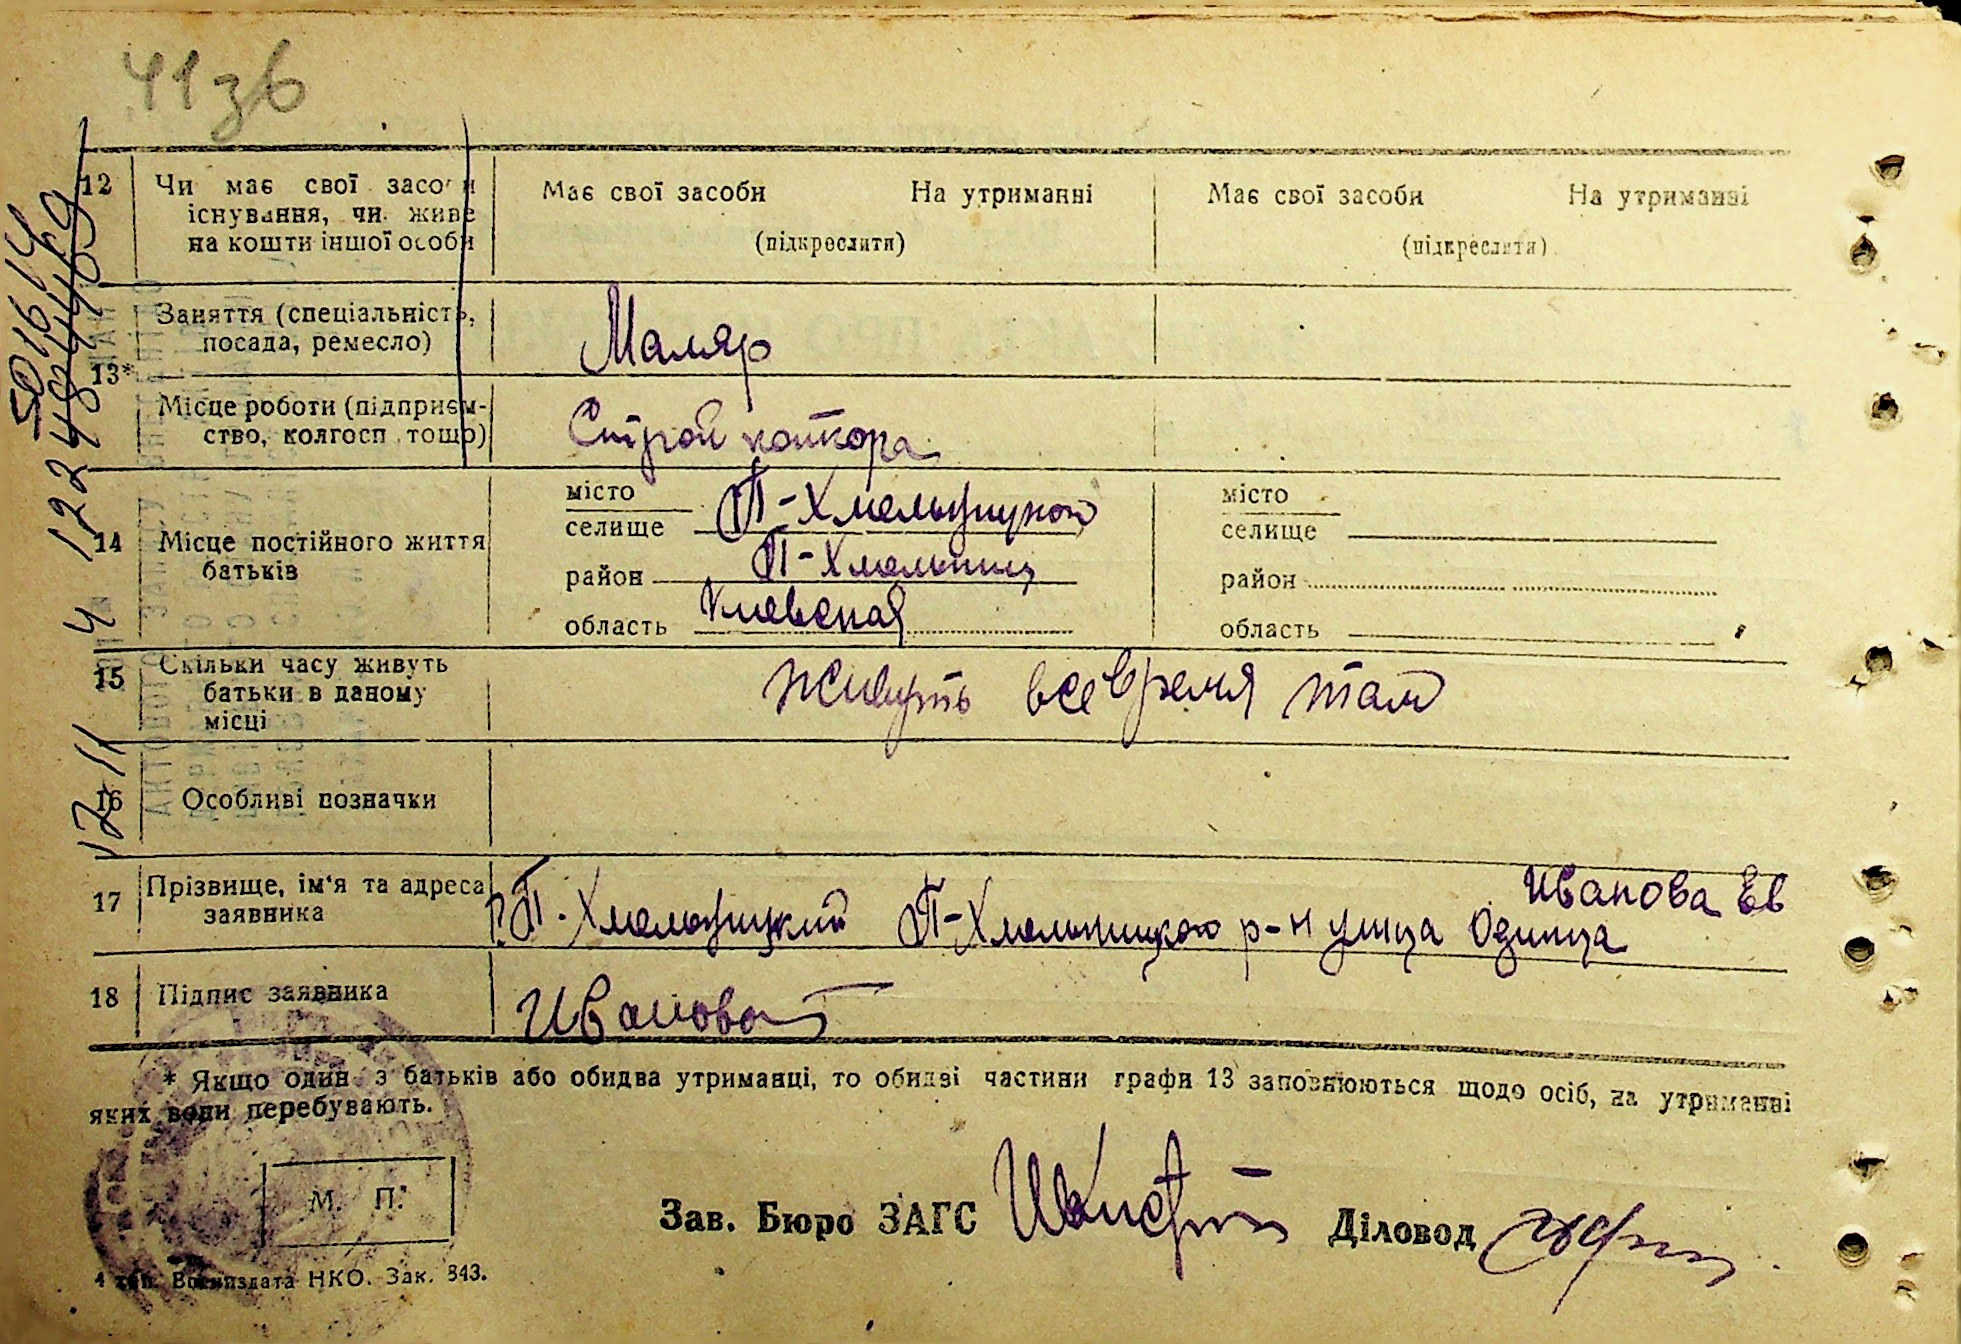 41зв
12 Чи має свої засоби існування, чи живе на кошти іншої особи
Має свої засоби На утриманні
(підкреслити)
Має свої засоби На утриманні
(підкреслити)
13*
Заняття (спеціальність, посада, ремесло)
Маляр
Місце роботи (підприєм-
ство, колгосп тощо)
Строй контора
14 Місце постійного життя
батьків
місто
селище П-Хмельницкого
район П-Хмельниц
область Киевская
місто
селище
район
область
15 Скільки часу живуть
батьки в даному
місці
Живуть все время там
16 Особливі позначки
17 Прізвище, ім'я та адреса
заявника
Иванова Ев
г. П-Хмельницкий П-Хмельницкого р-н улица Одинца
18 Підпис заявника
Иванова
* Якщо один з батьків або обидва утриманці, то обидві частини графи 13 заповнюються щодо осіб, на утриманні
яких вони перебувають.
М. П.
Зав. Бюро ЗАГС
Діловод
4 тип. Воениздата НКО. Зак. 843.